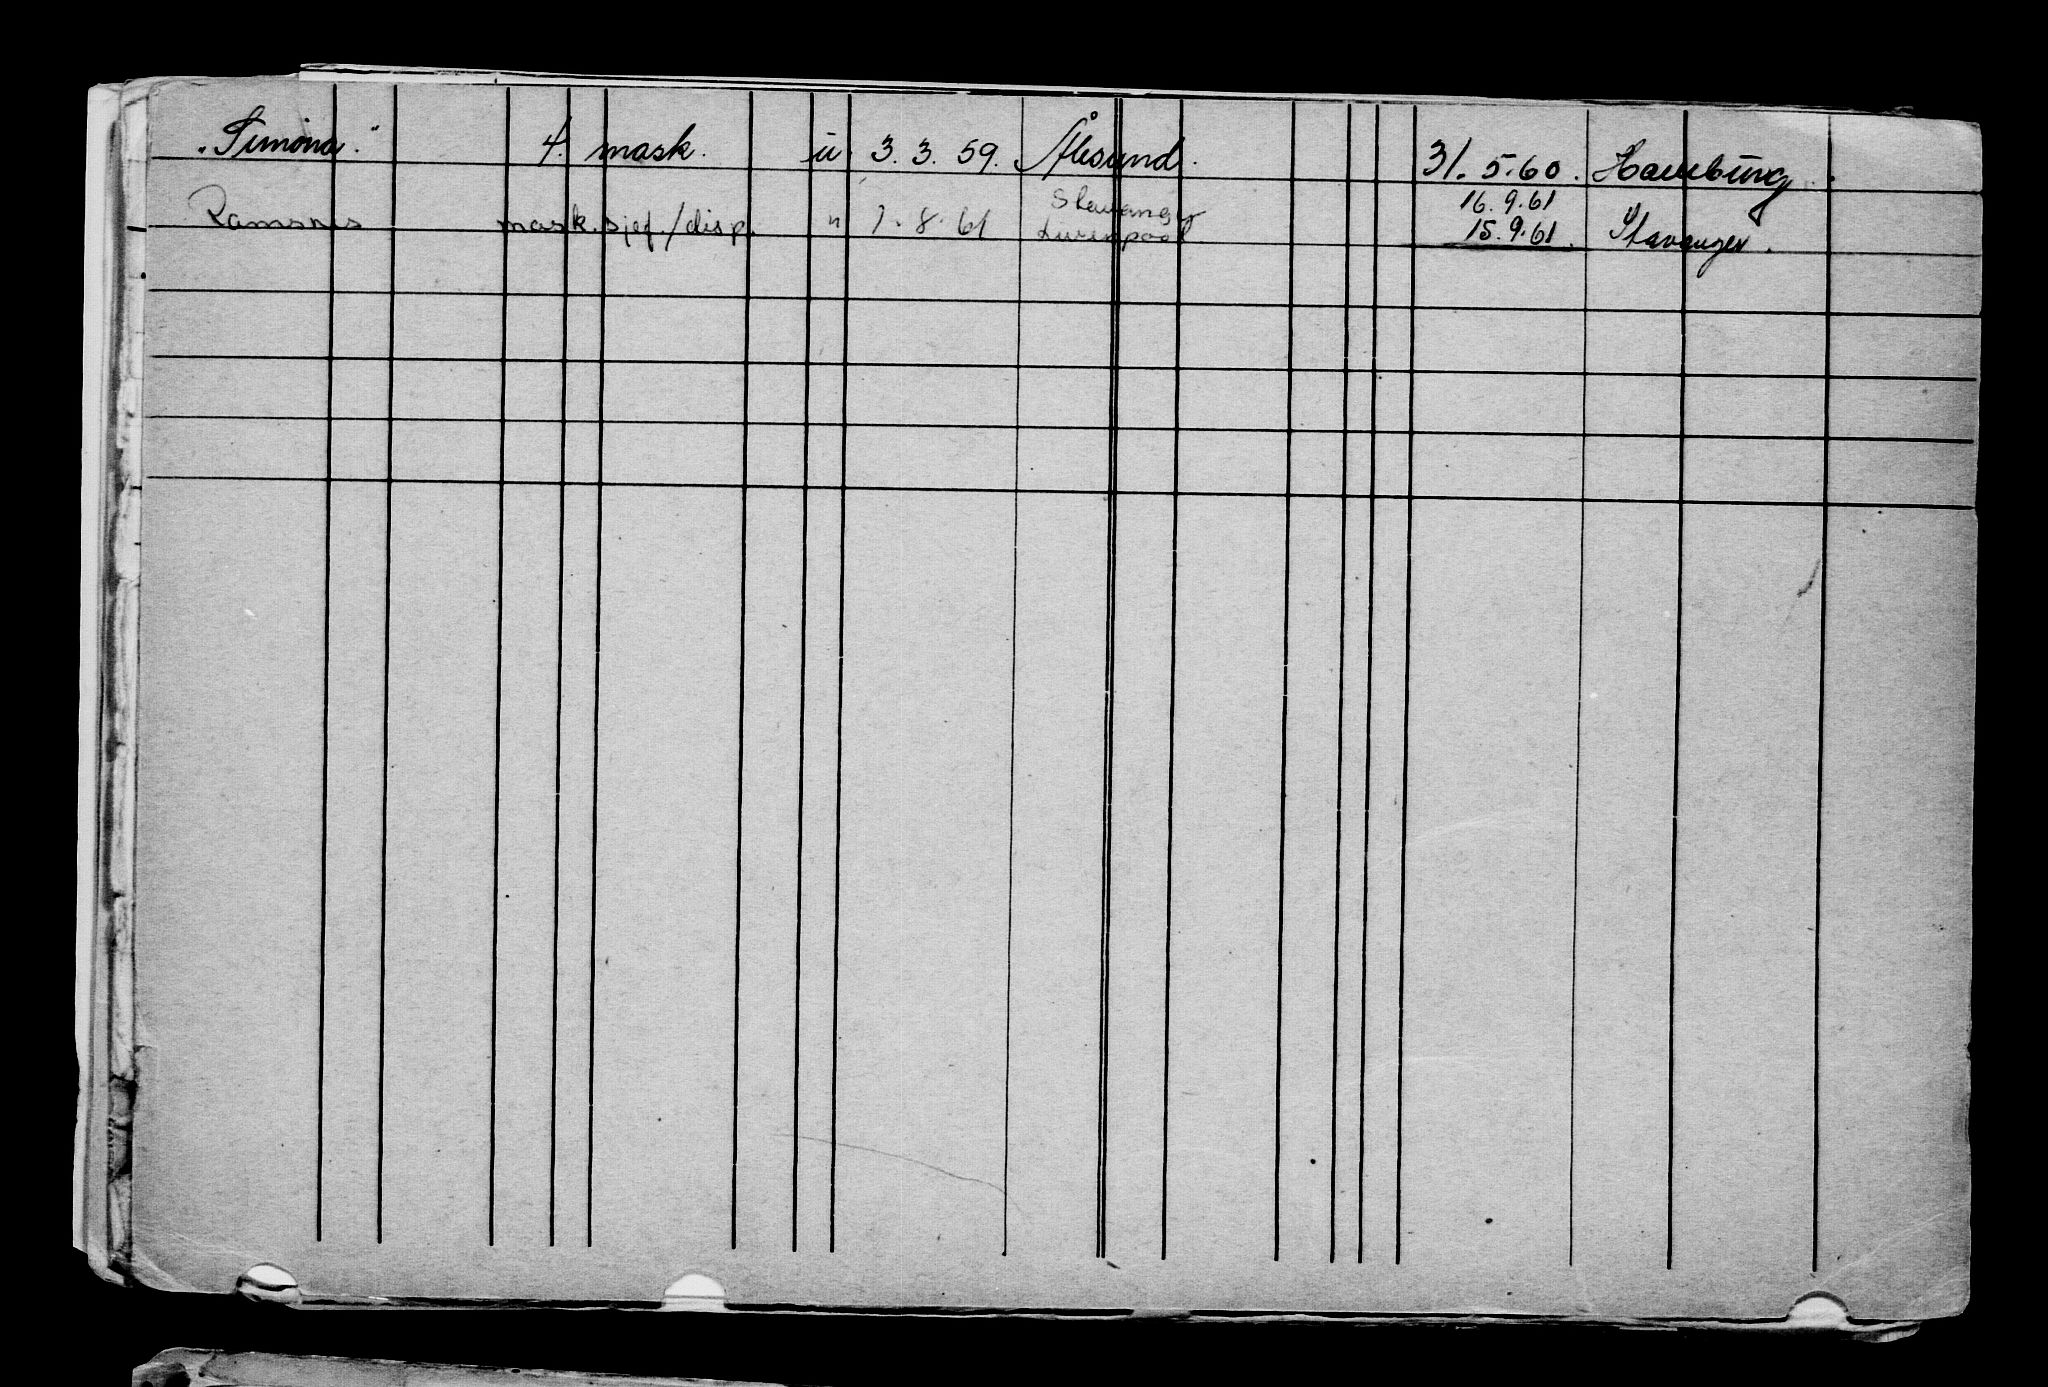 "Simona" 4. mask. u. 3. 3. 59. Ålesund. 31. 5.60. Hamburg.
Stavanger 16. 9. 61
Ramsnes mask.sjef./disp. u 1. 8. 61 Liverpool 15. 9. 61. Stavanger.